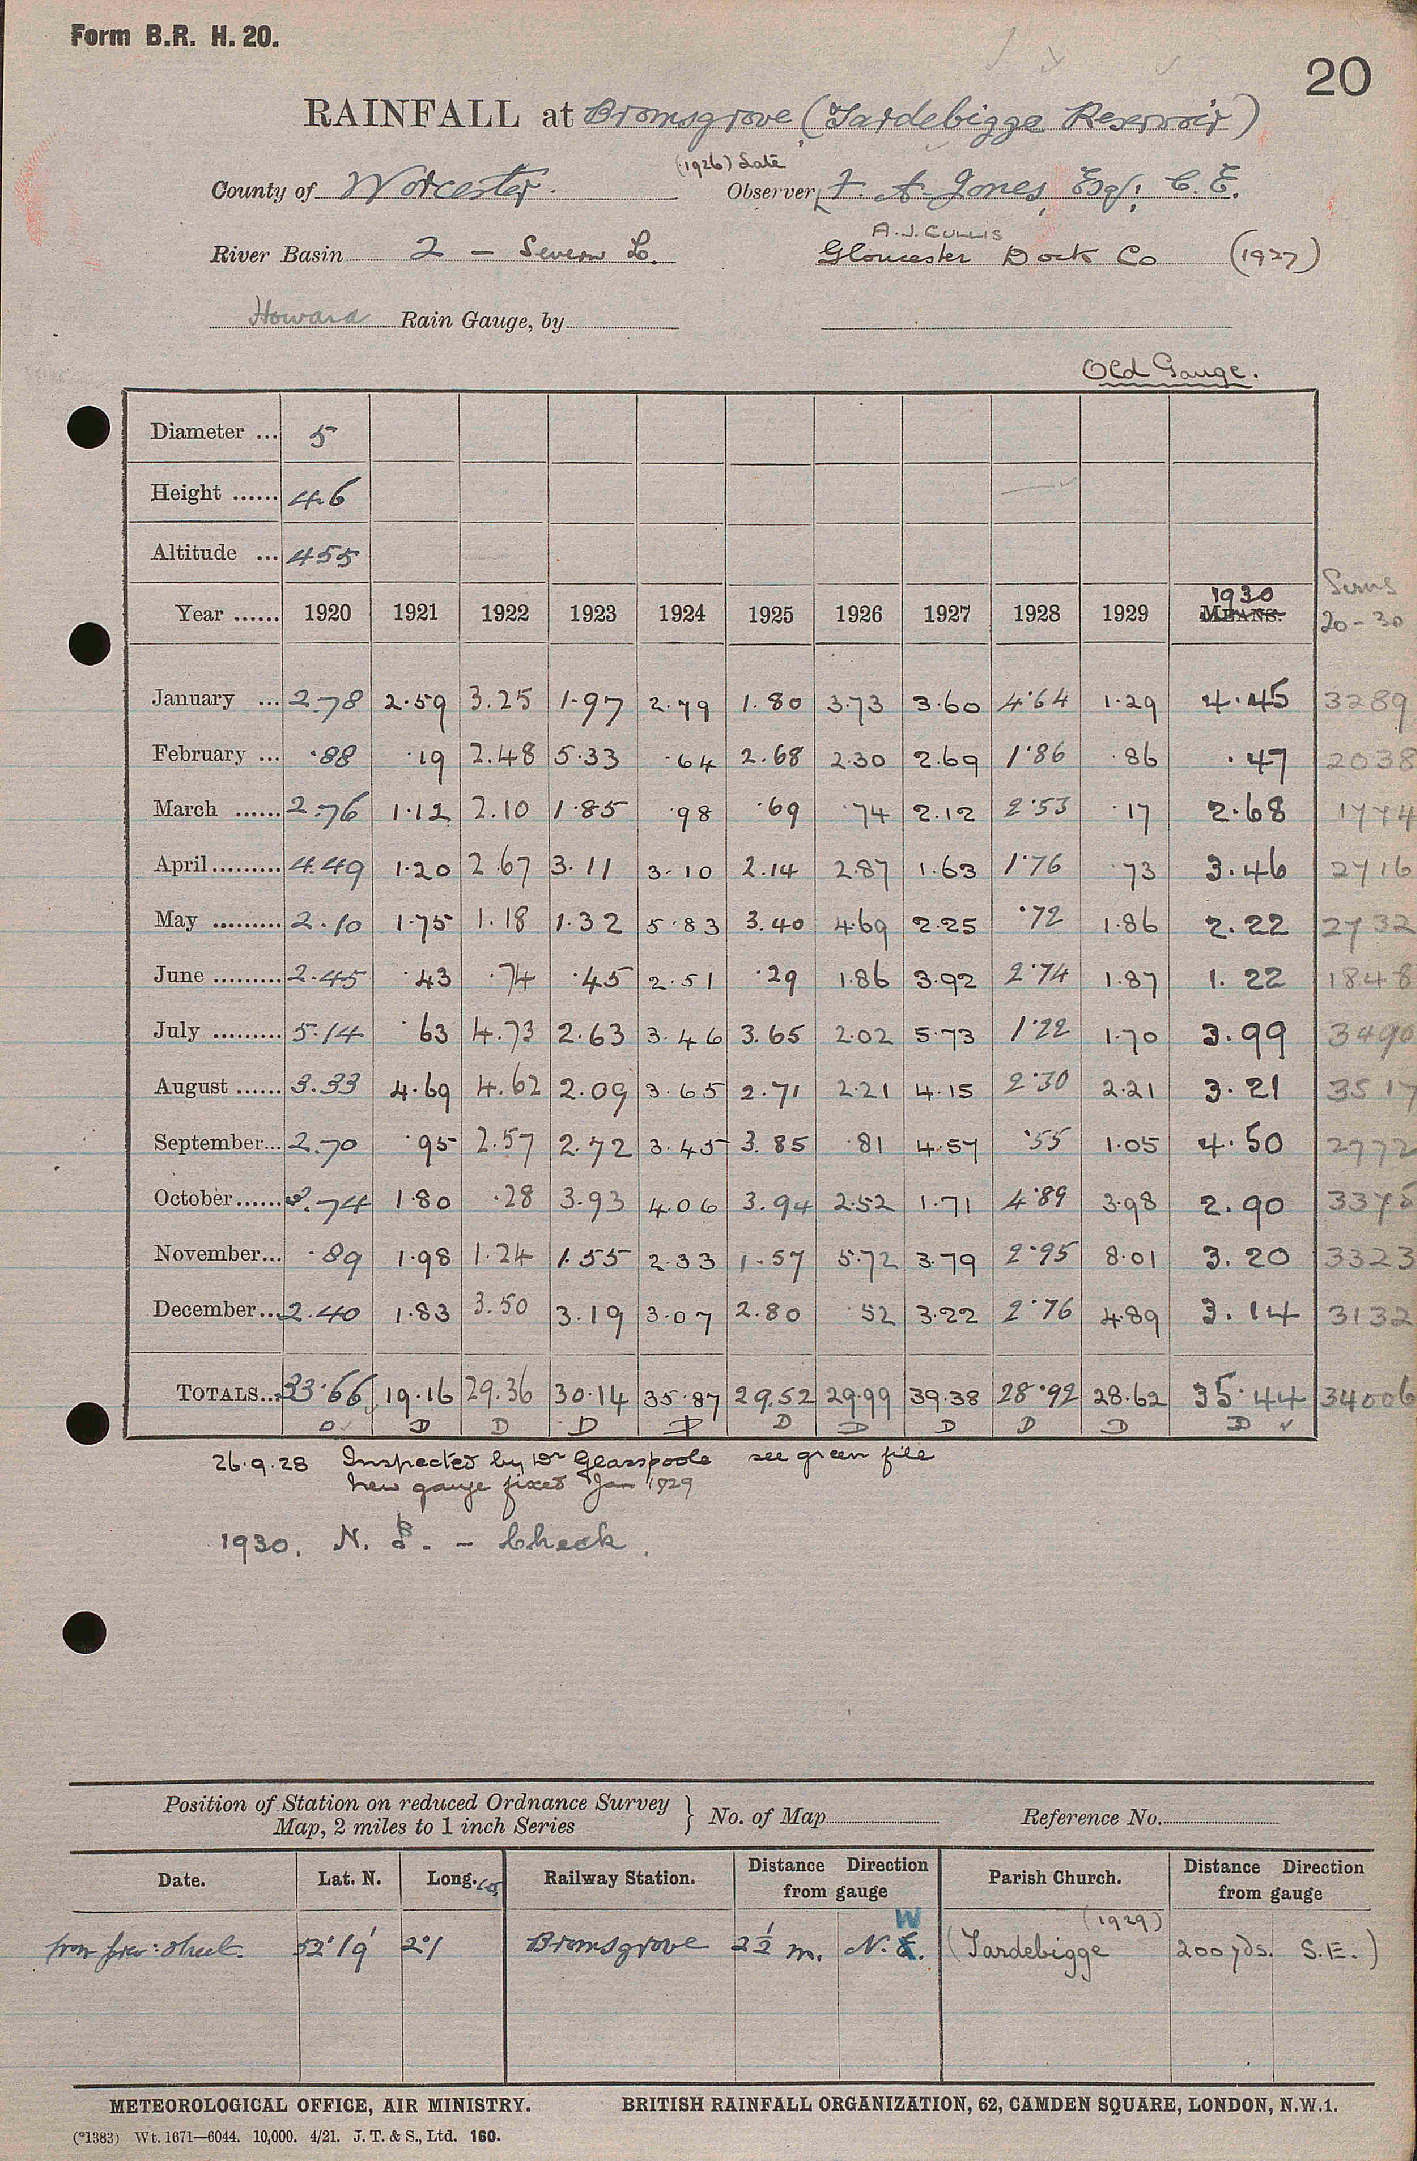 Form B.R. H. 20.
20
RAINFALL at Bromsgrove (Tardebigge Reservoir)
(1926) Late
County of Worcester. Observer, F. A. Jones, Esq; C. E.
A. J. CULLIS
River Basin 2 — Severn L. Gloucester Dock Co (1927)
Howard Rain Gauge, by
Old Gauge.
Diameter ... 5
Height ...... 4.6
Altitude ... 455
Year ...... 1920 1921 1922 1923 1924 1925 1926 1927 1928 1929 1930 MEANS. Sums 20-30
January ... 2.78 2.59 3.25 1.97 2.79 1.80 3.73 3.60 4.64 1.29 4.45 3289
February ... .88 .19 2.48 5.33 .64 2.68 2.30 2.69 1.86 .86 .47 2038
March ...... 2.76 1.12 2.10 1.85 .98 .69 .74 2.12 2.53 .17 2.68 1774
April ......... 4.49 1.20 2.67 3.11 3.10 2.14 2.87 1.63 1.76 .73 3.46 2716
May ......... 2.10 1.75 1.18 1.32 5.83 3.40 4.69 2.25 .72 1.86 2.22 2732
June ......... 2.45 .43 .74 .45 2.51 .29 1.86 3.92 2.74 1.87 1.22 1848
July ......... 5.14 .63 4.73 2.63 3.46 3.65 2.02 5.73 1.22 1.70 3.99 3490
August ...... 3.33 4.69 4.62 2.09 3.65 2.71 2.21 4.15 2.30 2.21 3.21 3517
September... 2.70 .95 2.57 2.72 3.45 3.85 .81 4.57 .55 1.05 4.50 2772
October ...... 3.74 1.80 .28 3.93 4.06 3.94 2.52 1.71 4.89 3.98 2.90 3375
November... .89 1.98 1.24 1.55 2.33 1.57 5.72 3.79 2.95 8.01 3.20 3323
December... 2.40 1.83 3.50 3.19 3.07 2.80 .52 3.22 2.76 4.89 3.14 3132
TOTALS... 33.66 19.16 29.36 30.14 35.87 29.52 29.99 39.38 28.92 28.62 35.44 34006
D D D D D D D D D D D
26.9.28 Inspected by Dr Glasspoole see green file
New gauge fixed Jan 1929
1930. N. — Check.
Position of Station on reduced Ordnance Survey
Map, 2 miles to 1 inch Series } No. of Map Reference No.
Date. Lat. N. Long. W. Railway Station. Distance Direction from gauge Parish Church. Distance Direction from gauge
W (1929)
from prev: sheet. 52°19' 2°1 Bromsgrove 2½ m. N. E. (Tardebigge 200 yds. S.E.)
METEOROLOGICAL OFFICE, AIR MINISTRY. BRITISH RAINFALL ORGANIZATION, 62, CAMDEN SQUARE, LONDON, N.W.1.
(*1383) Wt. 1671—6044. 10,000. 4/21. J. T. & S., Ltd. 160.